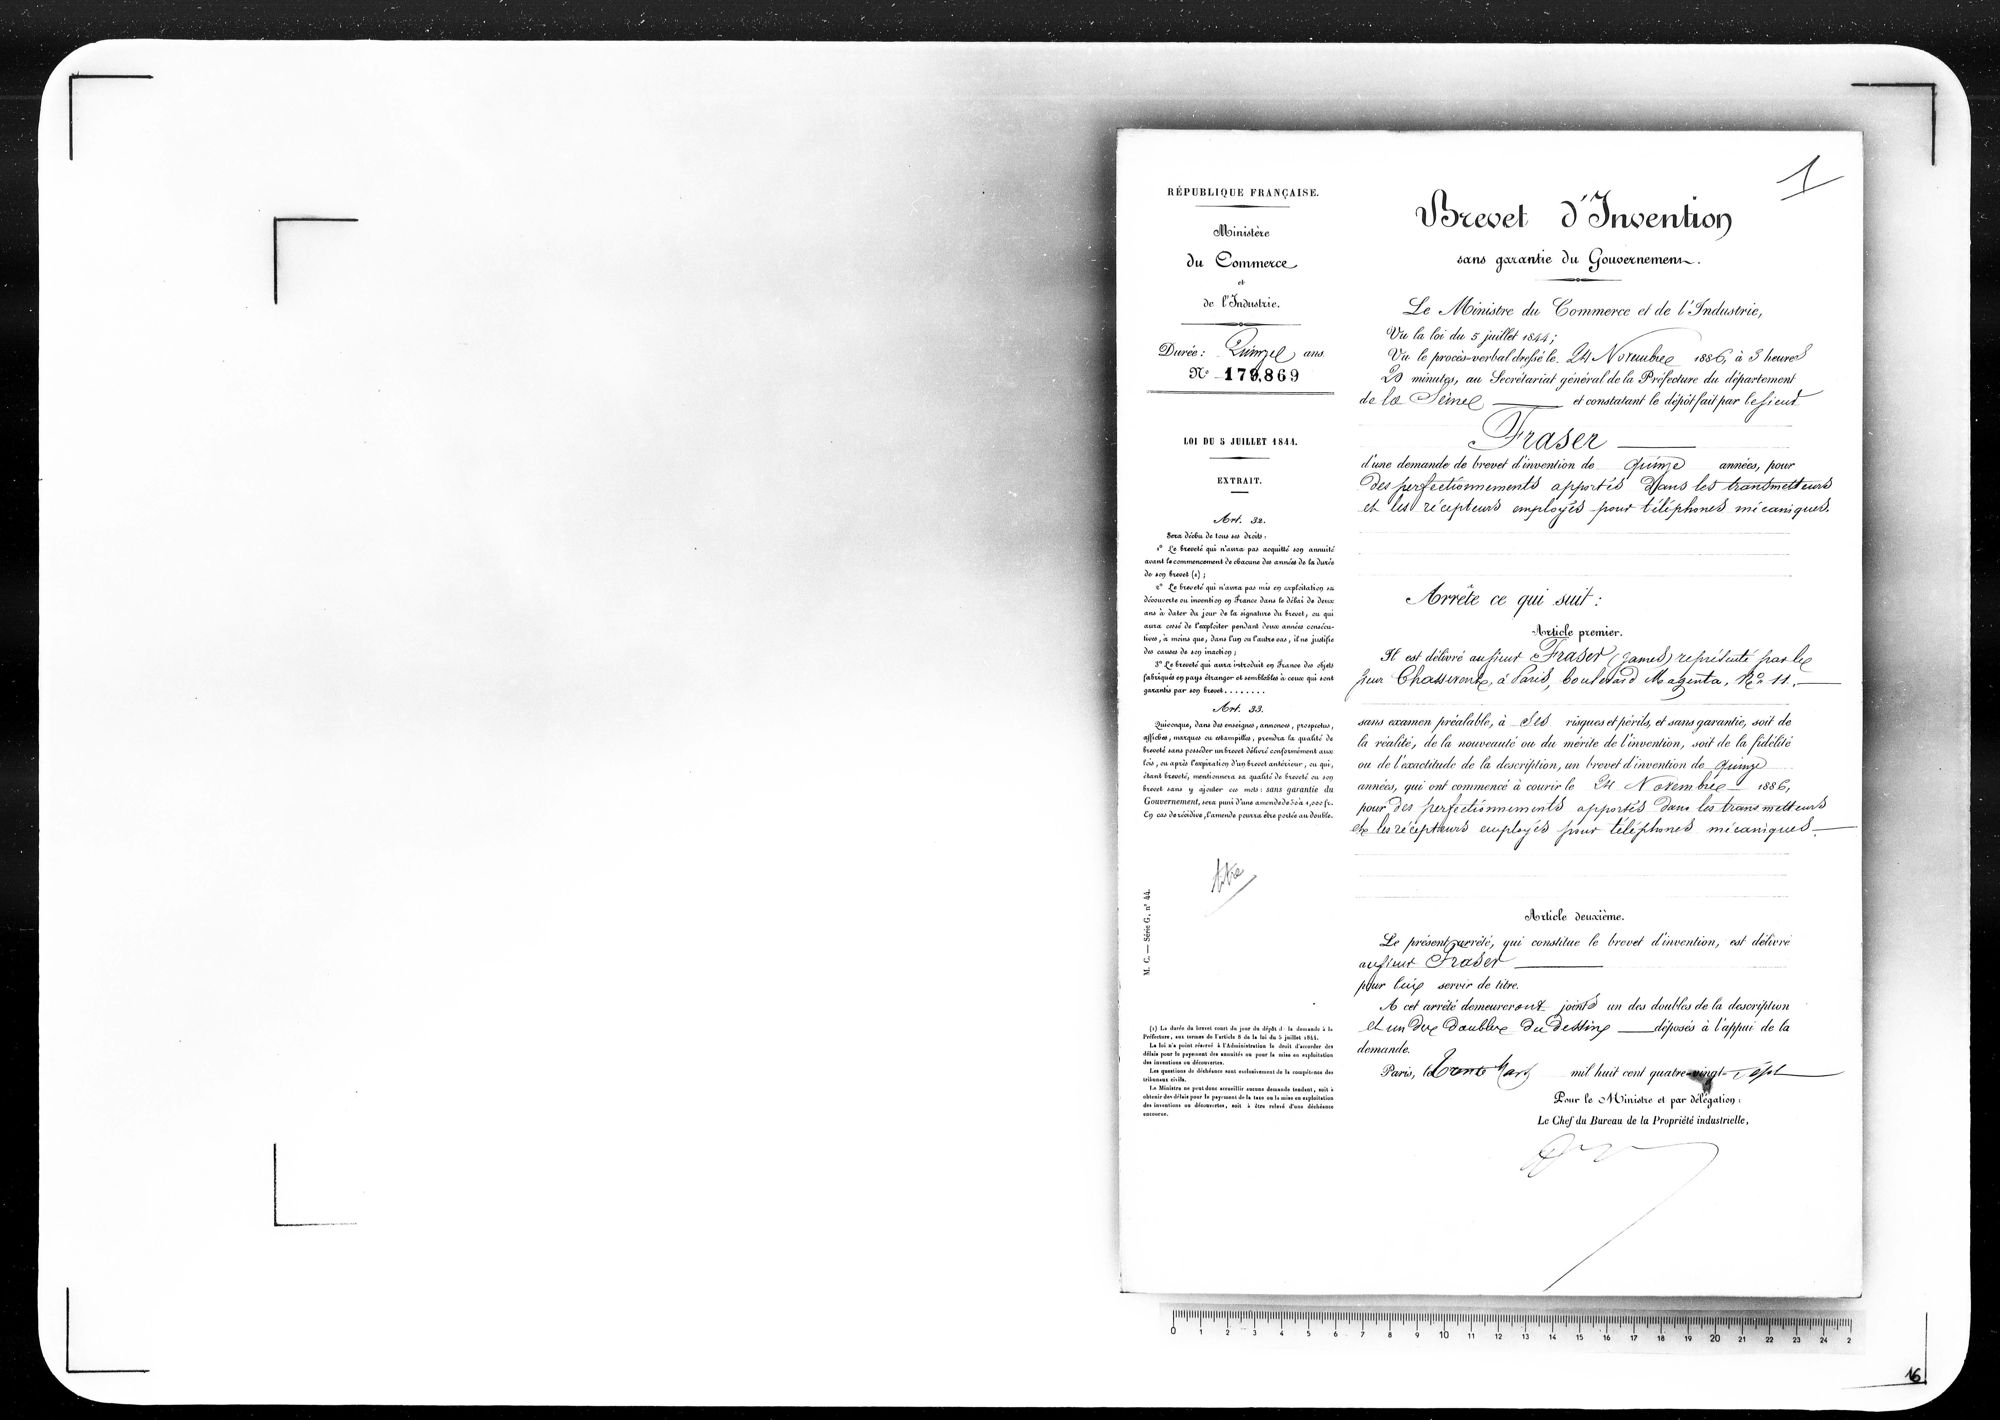 1
RÉPUBLIQUE FRANÇAISE.
Ministère
du Commerce
et
de l'Industrie.
Durée : Quinze ans.
N° 179,869
LOI DU 5 JUILLET 1844.
EXTRAIT.
Art. 32.
Sera déchu de tous ses droits :
1° Le breveté qui n'aura pas acquitté son annuité
avant le commencement de chacune des années de la durée
de son brevet (1) ;
2° Le breveté qui n'aura pas mis en exploitation sa
découverte ou invention en France dans le délai de deux
ans à dater du jour de la signature du brevet, ou qui
aura cessé de l'exploiter pendant deux années consécu-
tives, à moins que, dans l'un ou l'autre cas, il ne justifie
des causes de son inaction ;
3° Le breveté qui aura introduit en France des objets
fabriqués en pays étranger et semblables à ceux qui sont
garantis par son brevet........
Art. 33.
Quiconque, dans des enseignes, annonces, prospectus,
affiches, marques ou estampilles, prendra la qualité de
breveté sans posséder un brevet délivré conformément aux
lois, ou après l'expiration d'un brevet antérieur, ou qui,
étant breveté, mentionnera sa qualité de breveté ou son
brevet sans y ajouter ces mots : sans garantie du
Gouvernement, sera puni d'une amende de 50 à 1,000 fr.
En cas de récidive, l'amende pourra être portée au double.
M. C. — Série G, n° 44.
(1) La durée du brevet court du jour du dépôt de la demande à la
Préfecture, aux termes de l'article 8 de la loi du 5 juillet 1844.
La loi n'a point réservé à l'Administration le droit d'accorder des
délais pour le payement des annuités ou pour la mise en exploitation
des inventions ou découvertes.
Les questions de déchéance sont exclusivement de la compétence des
tribunaux civils.
Le Ministre ne peut donc accueillir aucune demande tendant, soit à
obtenir des délais pour le payement de la taxe ou la mise en exploitation
des inventions ou découvertes, soit à être relevé d'une déchéance
encourue.
Brevet d'Invention
sans garantie du Gouvernement.
Le Ministre du Commerce et de l'Industrie,
Vu la loi du 5 juillet 1844 ;
Vu le procès-verbal dressé le 24 Novembre 1886, à 3 heures
20 minutes, au Secrétariat général de la Préfecture du département
de la Seine et constatant le dépôt fait par le sieur
Fraser
d'une demande de brevet d'invention de quinze années, pour
des perfectionnements apportés dans les transmetteurs
et les récepteurs employés pour téléphones mécaniques.
Arrête ce qui suit :
Article premier.
Il est délivré au sieur Fraser (James) représenté par le
sieur Chassevent, à Paris, boulevard Magenta, N° 11.
sans examen préalable, à ses risques et périls, et sans garantie, soit de
la réalité, de la nouveauté ou du mérite de l'invention, soit de la fidélité
ou de l'exactitude de la description, un brevet d'invention de quinze
années, qui ont commencé à courir le 24 Novembre 1886,
pour des perfectionnements apportés dans les transmetteurs
et les récepteurs employés pour téléphones mécaniques.
Article deuxième.
Le présent arrêté, qui constitue le brevet d'invention, est délivré
au sieur Fraser
pour lui servir de titre.
A cet arrêté demeureront joints un des doubles de la description
et un des doubles du dessin déposés à l'appui de la
demande.
Paris, le trente Mars mil huit cent quatre-vingt-sept
Pour le Ministre et par délégation :
Le Chef du Bureau de la Propriété industrielle,
0 1 2 3 4 5 6 7 8 9 10 11 12 13 14 15 16 17 18 19 20 21 22 23 24 2
16